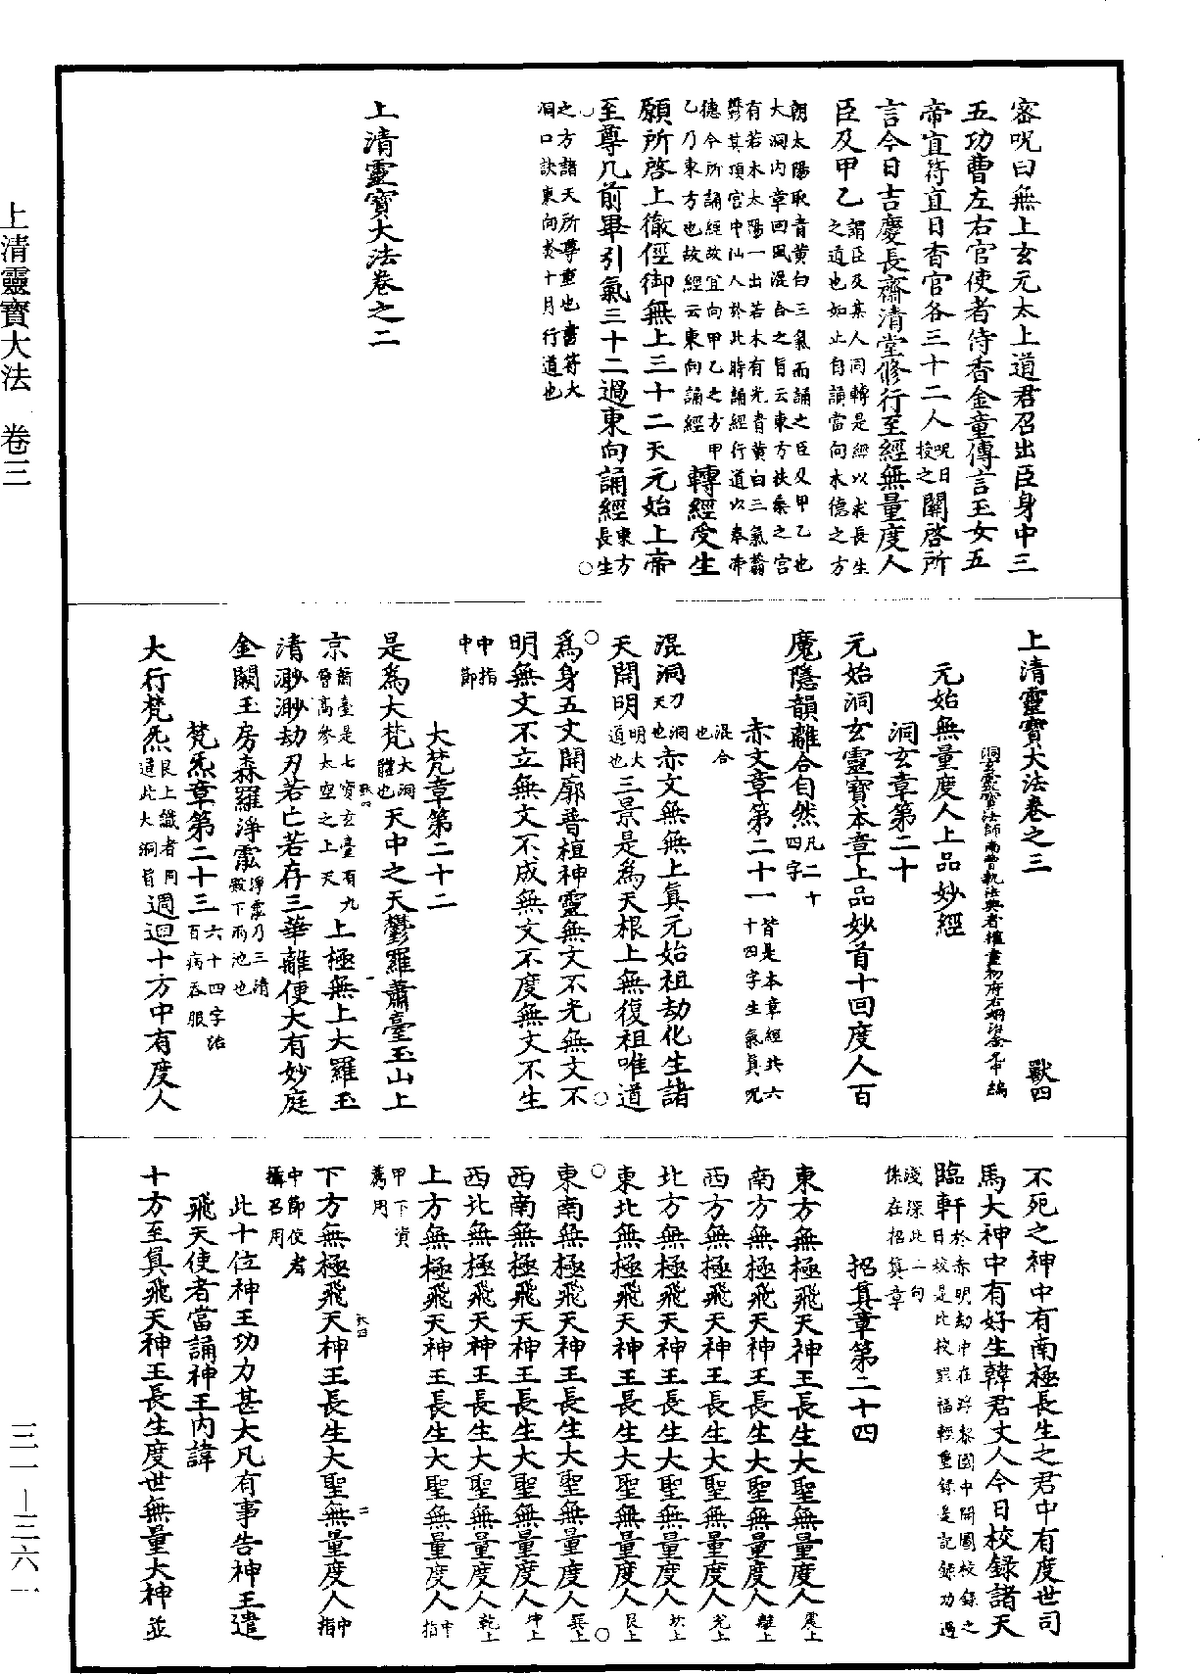 上清靈寶大法　卷三
三一－三六一
密呪曰無上玄元太上道君召出臣身中三
五功曹左右官使者侍香金童傳言玉女五
帝直符直日香官各三十二人呪曰授之關啓所
言今日吉慶長齋清堂修行至經無量度人
臣及甲乙謂臣及某人同轉是經以求長生之道也如止自誦當向木德之方
朝太陽取青黃白三氣而誦之臣及甲乙也
大洞內章回風混合之旨云東方扶桑之宮
有若木太陽一出若木有光青黃白三氣蓊
鬱其項宮中仙人於此時誦經行道以奉帝
德今所誦經故宜向甲乙之方甲
乙乃東方也故經云東向誦經轉經受生
願所啓上徹徑御無上三十二天元始上帝
至尊几前畢引氣三十二過東向誦經東方長生
之方諸天所尊重也書符大
洞口訣東向叅十月行道也
上清靈寶大法卷之二
上清靈寶大法卷之三　獸四
元始無量度人上品妙經
洞玄章第二十
元始洞玄靈寶本章上品妙首十回度人百
魔隱韻離合自然凡二十四字
赤文章第二十一皆是本章經共六十四字生氣真呪
混洞乃洞天也混合也赤文無無上真元始祖劫化生諸
天開明明大道也三景是為天根上無復祖唯道
為身五文開廓普植神靈無文不光無文不
明無文不立無文不成無文不度無文不生
中指中節
大梵章第二十二
是為大梵大洞體也天中之天鬱羅蕭臺玉山上
京蕭臺是七寶玄臺有九層高參太空之上天上極無上大羅玉
清渺渺劫刃若亡若存三華離便大有妙庭
金闕玉房森羅淨泓淨泓乃三清殿下雨池也
梵炁章第二十三六十四字治百病吞服
大行梵炁艮上識者同道此大洞旨週迴十方中有度人
不死之神中有南極長生之君中有度世司
馬大神中有好生韓君丈人今日校錄諸天
臨軒於赤明劫中在浮黎國中開圖校錄之日校是比校罪福輕重錄是記錄功過
淺深此二句係在招真章
招真章第二十四
東方無極飛天神王長生大聖無量度人震上
南方無極飛天神王長生大聖無量度人離上
西方無極飛天神王長生大聖無量度人兌上
北方無極飛天神王長生大聖無量度人坎上
東北無極飛天神王長生大聖無量度人艮上
東南無極飛天神王長生大聖無量度人巽上
西南無極飛天神王長生大聖無量度人坤上
西北無極飛天神王長生大聖無量度人乾上
上方無極飛天神王長生大聖無量度人中指
甲下資薦用
下方無極飛天神王長生大聖無量度人中指
中節使者攝召用
此十位神王功力甚大凡有事告神王遣
飛天使者當誦神王內諱
十方至真飛天神王長生度世無量大神並